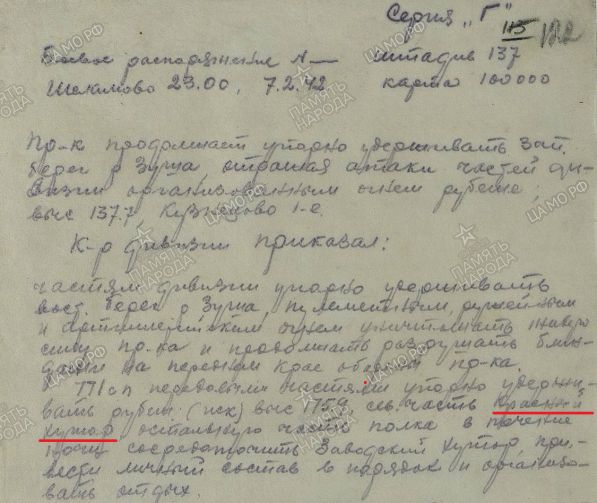 Серия „Г"
115
122
Боевое распоряжение N — штадив 137
Шеламово 23.00, 7.2.42 карта 100000
Пр-к продолжает упорно удерживать зап.
берег р Зуша отражая атаки частей ди-
визии организованным огнем рубеже;
выс 137.7, Кузнецово 1-е.
К-р дивизии приказал:
частям дивизии упорно удерживать
вост. берег р Зуша, пулеметным, ружейным
и артиллерийским огнем уничтожать живую
силу пр-ка и продолжать разрушать блин-
дажи на переднем крае обороны пр-ка.
771 сп передовыми частями упорно удержи-
вать рубеж: (иск) выс 175.9, сев. часть Красный
Хутор, остальную часть полка в течение
ночи сосредоточить Заводский Хутор, при-
вести личный состав в порядок и организо-
вать отдых.
ЦА МО РФ
ПАМЯТЬ НАРОДА